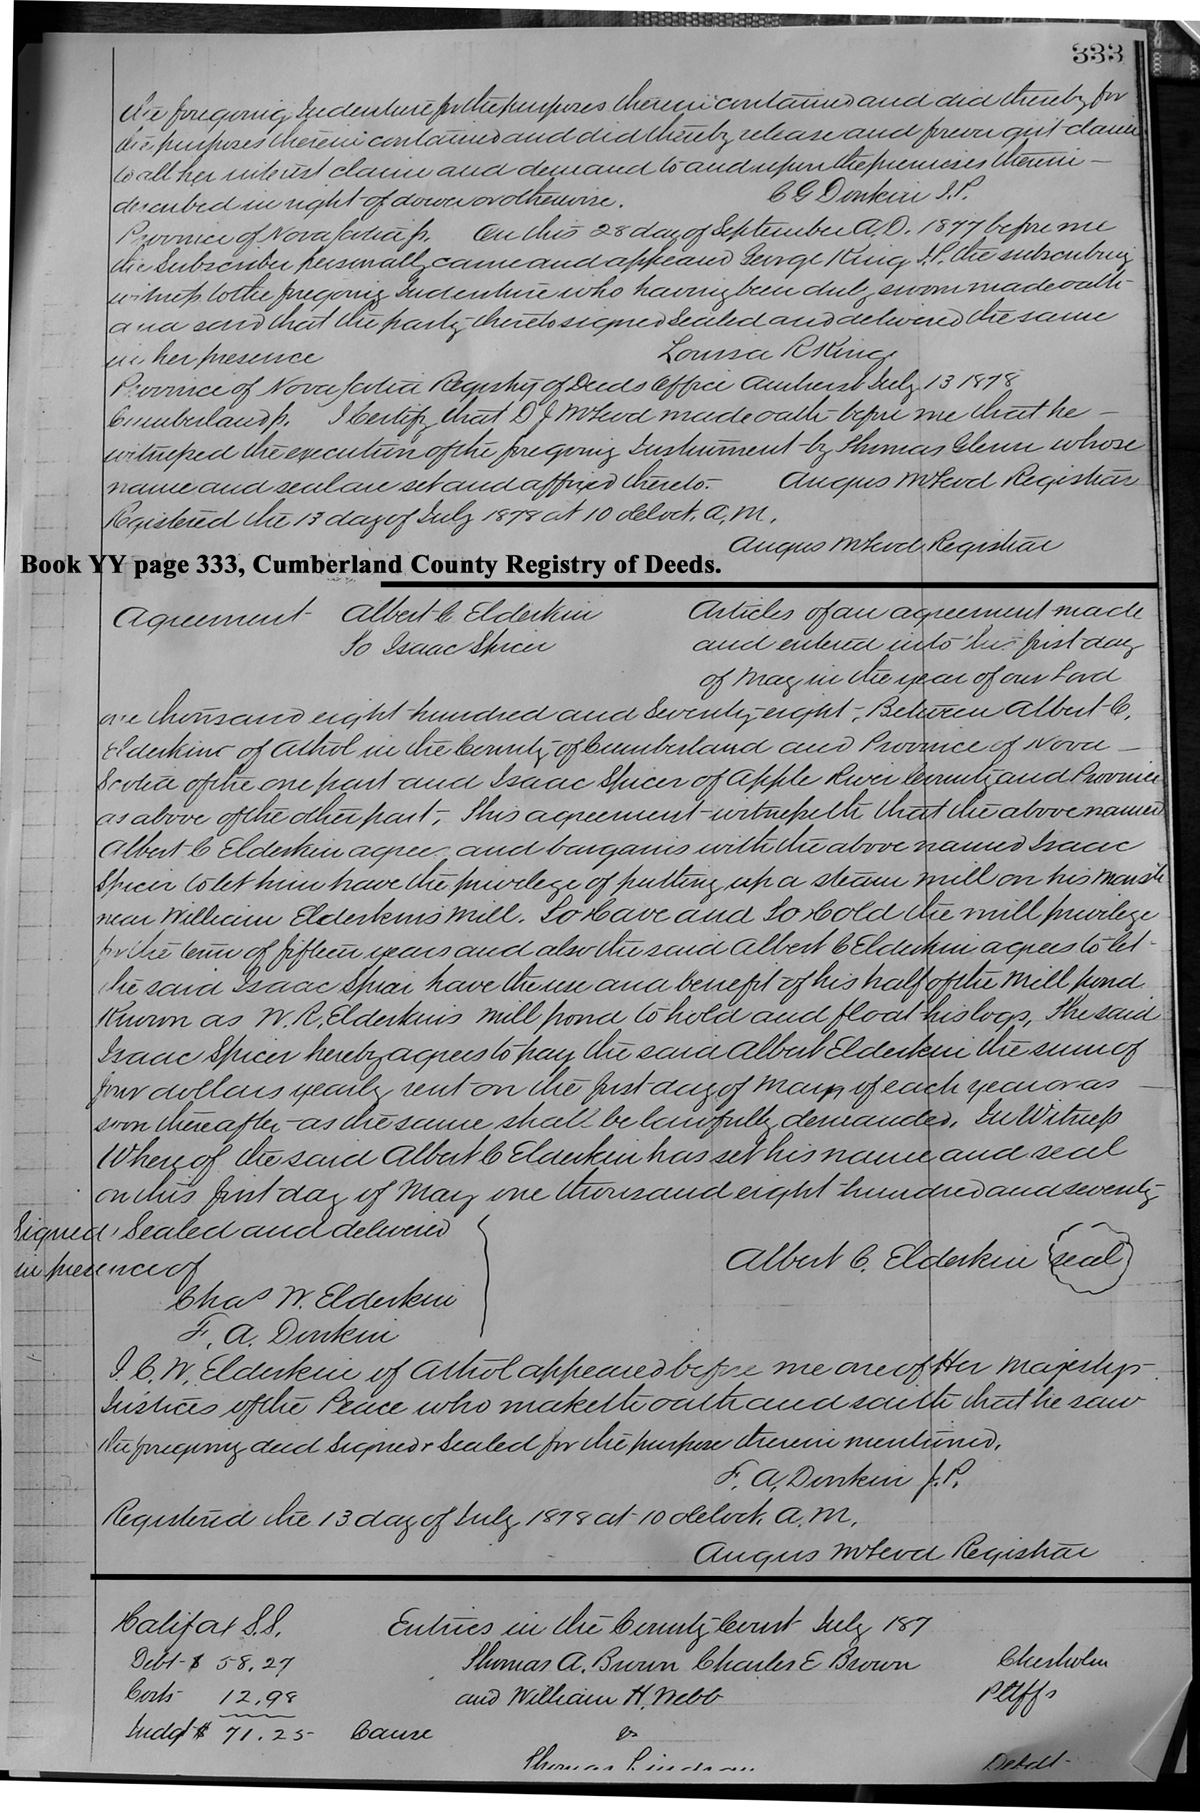 333
the foregoing Indenture for the purposes therein contained and did thereby for
the purposes therein contained and did thereby release and forever quit claim
to all her interest claim and demand to and upon the premises therein –
described in right of dower or otherwise. C G Donkin J.P.
Province of Nova Scotia ss. On this 28 day of September A.D. 1877 before me
the Subscriber personally came and appeared George King J.P. the subscribing
witness to the foregoing Indenture who having been duly sworn made oath –
and said that the party thereto signed Sealed and delivered the same
in her presence Louisa R King
Province of Nova Scotia Registry of Deeds Office Amherst July 13 1878
Cumberland ss. I Certify that D J McLeod made oath before me that he –
witnessed the execution of the foregoing Instrument by Thomas Glenn whose
name and seal are set and affixed thereto. Angus McLeod Registrar
Registered the 13 day of July 1878 at 10 oclock. A.M.
Angus McLeod Registrar
Book YY page 333, Cumberland County Registry of Deeds.
Agreement Albert C Elderkin Articles of an agreement made
To Isaac Spicer and entered into this first day
of May in the year of our Lord
one thousand eight hundred and Seventy eight, Between Albert C.
Elderkin of Athol in the County of Cumberland and Province of Nova –
Scotia of the one part and Isaac Spicer of Apple River County and Province
as above of the other part, This agreement witnesseth that the above named
Albert C Elderkin agree and bargains with the above named Isaac
Spicer to let him have the privilege of putting up a steam mill on his
near William Elderkins Mill. To Have and To Hold the mill privilege
for the term of fifteen years and also the said Albert C Elderkin agrees to let –
the said Isaac Spicer have the use and benefit of his half of the Mill pond
Known as W. R. Elderkins Mill pond to hold and float his logs, The said
Isaac Spicer hereby agrees to pay the said Albert Elderkin the sum of
four dollars yearly rent on the first day of May of each year or as –
soon thereafter as the same shall be lawfully demanded. In Witness
Whereof the said Albert C Elderkin has set his name and seal
on this first day of May one thousand eight hundred and seventy
Signed, Sealed and delivered
in presence of Albert C. Elderkin seal
Chas W. Elderkin
F. A. Donkin
I. C. W. Elderkin of Athol appeared before me one of Her Majestys
Justices of the Peace who maketh oath and saith that he saw
the foregoing deed Signed & Sealed for the purpose therein mentioned.
F. A. Donkin J.P.
Registered the 13 day of July 1878 at 10 oclock. A.M.
Angus McLeod Registrar
Halifax S.S. Entries in the County Court July 187
Debt $ 58.27 Thomas A. Brown Charles E Brown Chisholm
Costs 12.98 and William H. Webb Pltffs
Judgt $ 71.25 Cause vs
Thomas Defdt